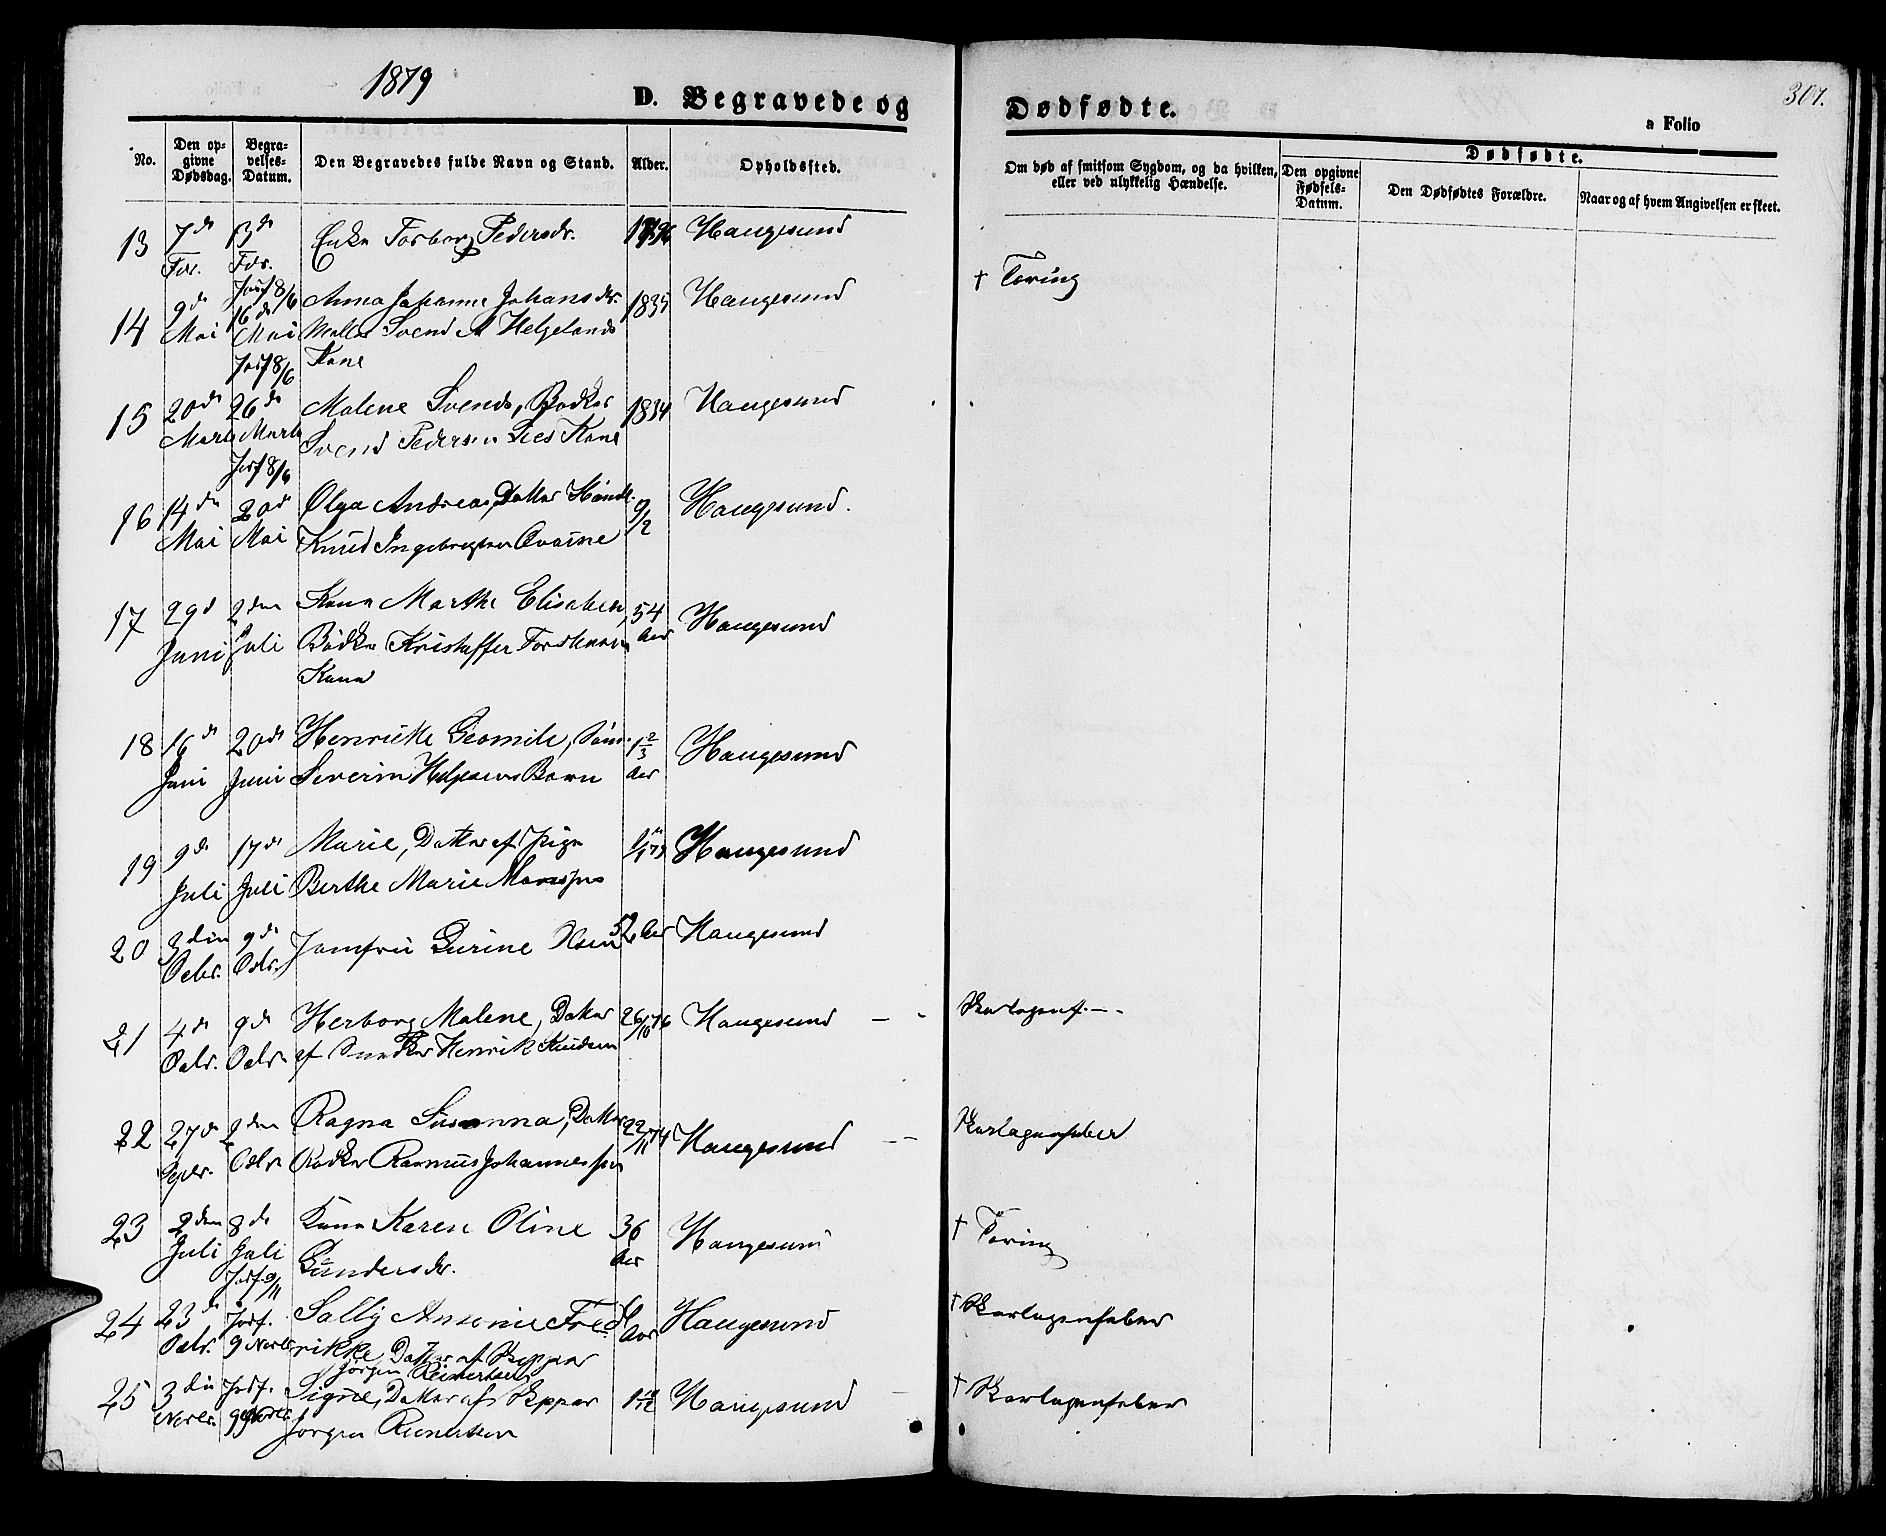 1879
D. Begravede og
Dødfødte.
307.
a Folio
No.
Den opgivne Dødsdag.
Begravelses-Datum.
Den Begravedes fulde Navn og Stand.
Alder.
Opholdssted.
Om død af smitsom Sygdom, og da hvilken, eller ved ulykkelig Hændelse.
Dødfødte.
Den opgivne Fødsels-Datum.
Den Dødfødtes Forældre.
Naar og af hvem Angivelsen er skeet.
13 7de 13de Enke Torborg Pedersdr. Haugesund
14 9de Jorf 8/6 Anna Johanne Johansdr. 1835 Haugesund † Tæring
Mai 16de Mai Svend Helgelands
Jorf 8/6 Kone
15 20de 26de Malene Svends, Bødker 1834 Haugesund
Marts Marts Svend Pedersen Kone
Jorf 8/6
16 14de 20de Olga Andrea, Datter 9/2 Haugesund.
Mai Mai Knud Ingebregtsen
17 29d 2den Kone Marthe Elisabeth 54 Haugesund
Juni Juli Bødker Kristoffer Aar
Kone
18 16de 20de Henrikke 1 2/3 Haugesund
Juni Juni Severin Helgesens Barn Aar
19 9de 17de Marie, Datter af Pige Haugesund
Juli Juli Berthe Marie
20 3die 9de Jomfru Gurine Olsen 52 Aar Haugesund
Octbr. Octbr.
21 4de 9de Herborg Malene, Datter 26/10 76 Haugesund — Skarlagensf. —
Octbr. Octbr. af Snedker Henrik Knudsen
22 27de 2den Ragna Susanna, Datter 22/11 74 Haugesund — Skarlagensfeber
Sepbr. Octbr Bødker Rasmus Johannessen
23 2den 8de Kone Karen Oline 36 Haugesund † Tæring
Juli Juli Gundersdr. Aar
Jorf. 9/11
24 23de Jorf. Sally Antonie Fred Haugesund † Skarlagensfeber
Octbr. 9 Novbr rikke, Datter af Skipper Aar
Jørgen Reinertsen
25 3die Jorf. Signe, Datter af Skipper Haugesund † Skarlagensfeber
Novbr. 9 Novbr. Jørgen Reinertsen